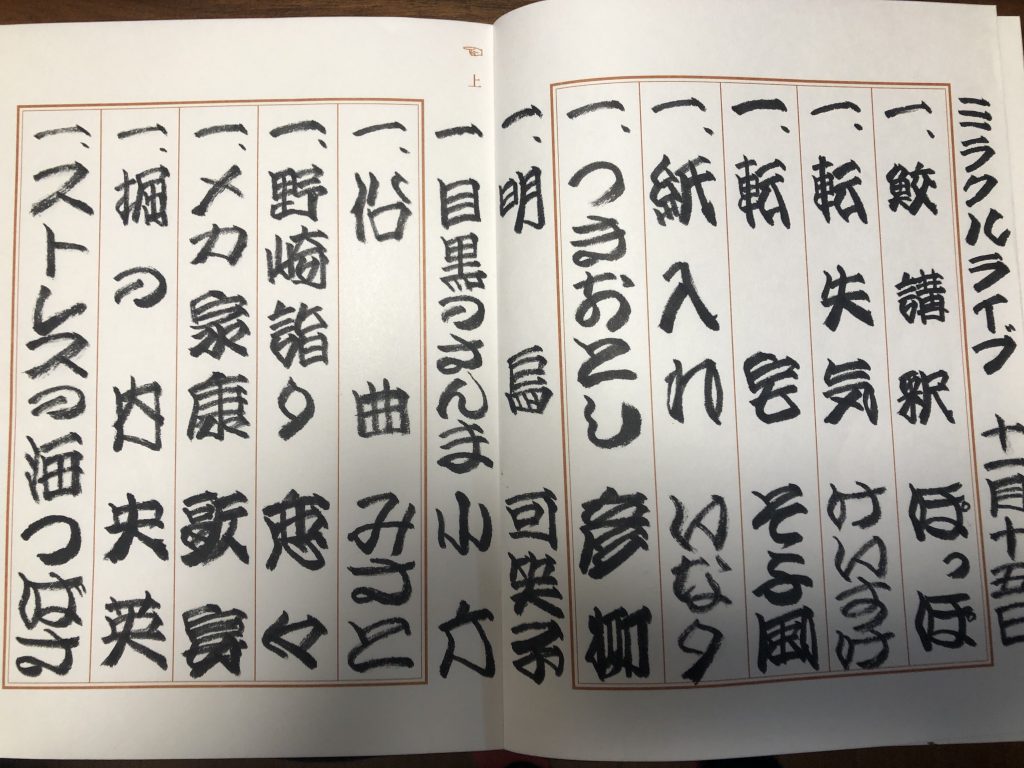 ミラクルライブ 十一月十五日
一、鮫講釈 ぽっぽ
一、転失気 けいすけ
一、転宅 そよ風
一、紙入れ いなり
一、つきおとし 彦柳
一、明烏
一 目黒のさんま 小六
上
一、俗曲 みさと
一、野崎詣り
一、メカ家康
一、堀の内 央英
一、ストレスの海 つばさ